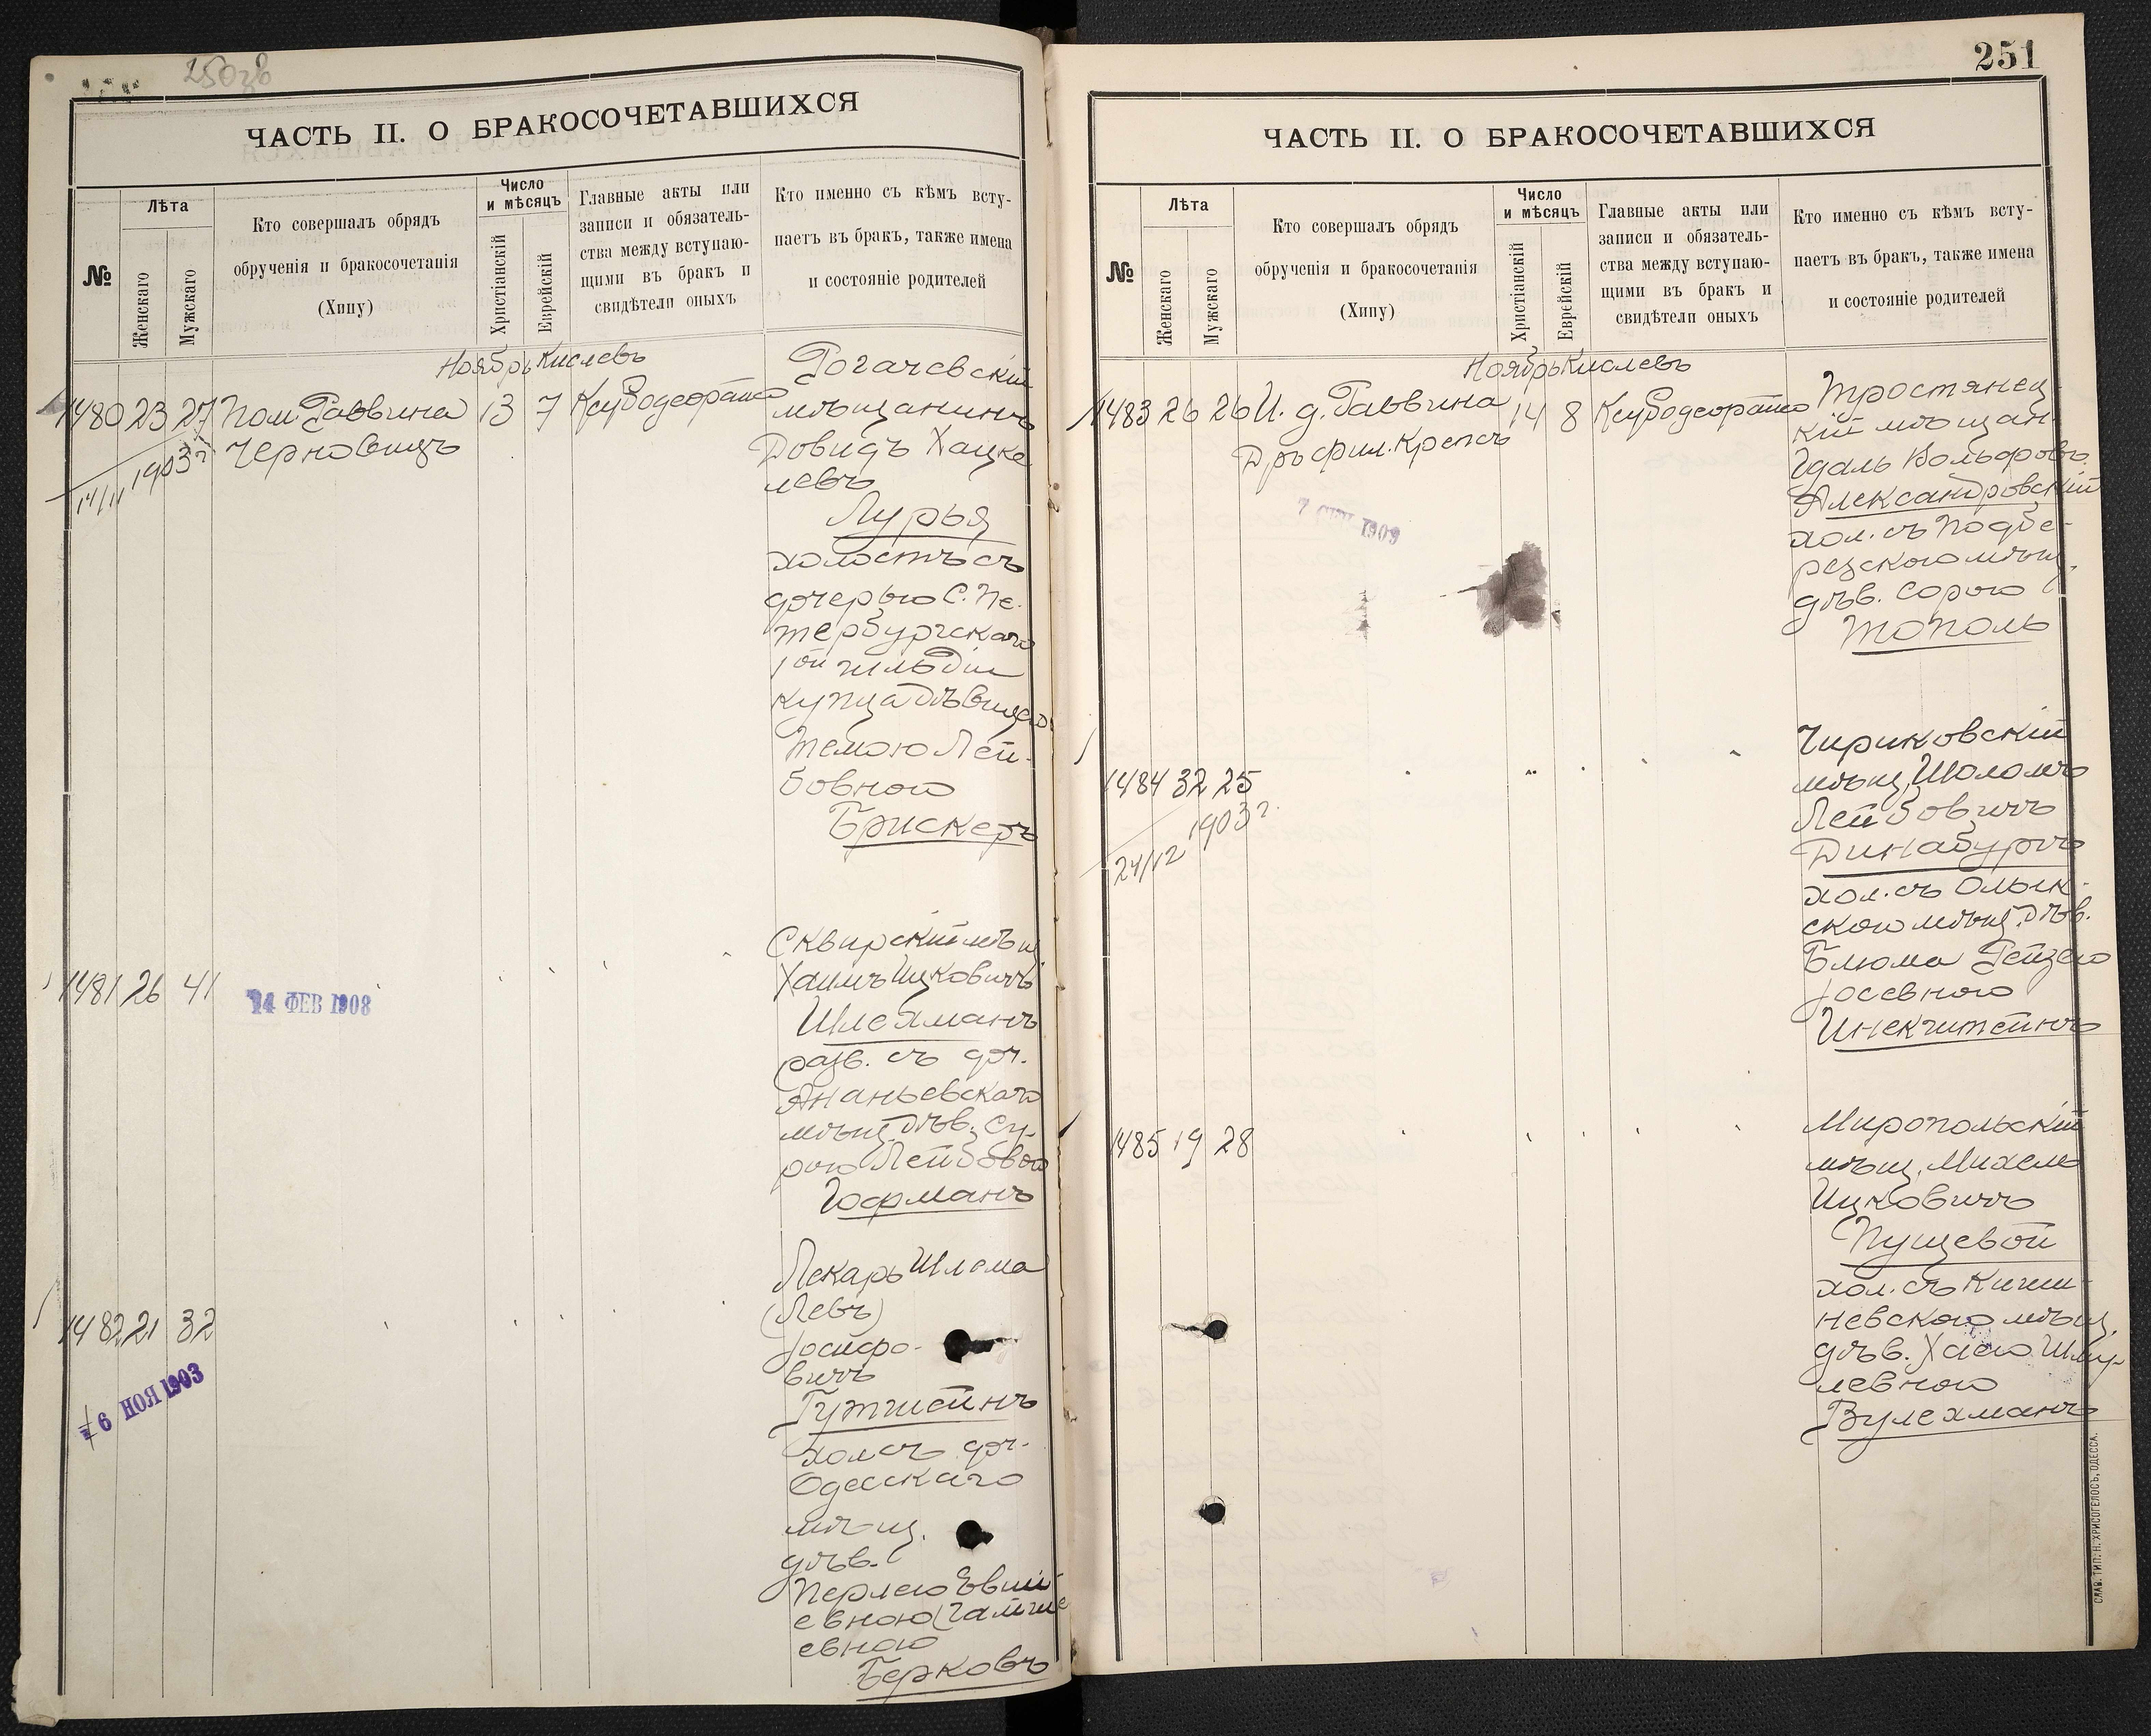 250зв
ЧАСТЬ II. О БРАКОСОЧЕТАВШИХСЯ
№
Лѣта
Женскаго
Мужскаго
Кто совершалъ обрядъ
обрученія и бракосочетанія
(Хипу)
Число
и мѣсяцъ
Христіанскій
Еврейскій
Главные акты или
записи и обязатель-
ства между вступаю-
щими въ бракъ и
свидѣтели оныхъ
Кто именно съ кѣмъ всту-
паетъ въ бракъ, также имена
и состояніе родителей
Ноябрь Кислевъ
1480 23 27 Пом. Раввина
Черновицъ
13 7
14/11 1903 г
Рогачевскій
мѣщанинъ
Довидъ Хацке
левъ
Лурья
холостъ съ
дочерью С. Пе-
тербургскаго
1ой гильдіи
купца дѣвицею
Темою Лей-
бовною
Брискеръ
1481 26 41
14 ФЕВ 1908
Сквирскій мѣщ.
Хаимъ Ицковичъ
Шлехманъ
разв. съ доч.
Ананьевскаго
мѣщ. дѣв. Су-
рою Лейбовой
Гофманъ
1482 21 32
6 НОЯ 1903
Лекарь Шлема
(Левъ)
Іосифо-
вичъ
Гутштейнъ
хол. съ доч.
Одесскаго
мѣщ.
дѣв.
Перлею
евною
евною
Берковъ
251
ЧАСТЬ II. О БРАКОСОЧЕТАВШИХСЯ
№
Лѣта
Женскаго
Мужскаго
Кто совершалъ обрядъ
обрученія и бракосочетанія
(Хипу)
Число
и мѣсяцъ
Христіанскій
Еврейскій
Главные акты или
записи и обязатель-
ства между вступаю-
щими въ бракъ и
свидѣтели оныхъ
Кто именно съ кѣмъ всту-
паетъ въ бракъ, также имена
и состояніе родителей
Ноябрь Кислевъ
1483 26 26 И. д. Раввина
Дръ фил. Крепсъ
14 8
1909
Тростянец-
кій мѣщан.
Удаль Вольфовъ
Александровскій
хол. съ Подбе-
резскою мѣщ.
дѣв. Сорою
Тополь
1484 32 25
24/12 1903 г.
Чириковскій
мѣщ. Шоломъ
Лейбовичъ
Динабургъ
хол. съ Олык-
скою мѣщ. дѣв.
Блюма Рейзею
Іосевною
1485 19 28
Миропольскій
мѣщ. Михель
Ицковичъ
Пущевой
хол. съ Киши-
невскою мѣщ.
дѣв. Хаею Шму-
левною
Вулехманъ
СЛАВ. ТИП. Н. ХРИСОГЕЛОСЪ, ОДЕССА.